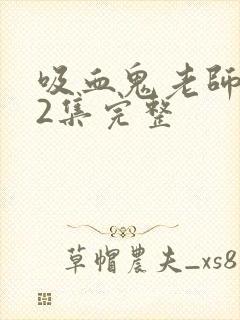 吸血鬼老師
2集完整
草帽農夫_xs8